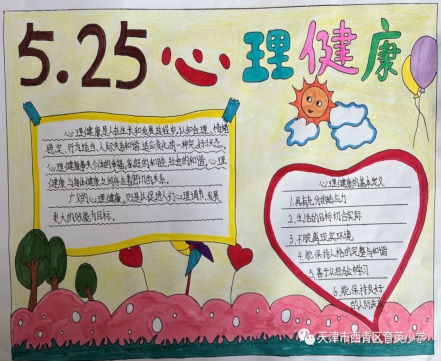 5.25心理健康
心理健康是人在生长和发展过程中,认知合理、情绪
稳定、行为适当、人际关系和谐、适应变化的一种完好状态。
心理健康事关个体的幸福,家庭的和谐,社会的和谐。心理
健康与身体健康之间存在着密切的关系。
广义的心理健康,则是以促进人们心理调节、发展
更大的效能为目标。
心理健康的基本定义
1.具有充分的适应力
2.生活的目标切合实际
3.不脱离现实环境
4.能保持人格的完整与和谐
5.善于从经验中学习
6.能保持良好
的人际关系
天津市西青区育英小学